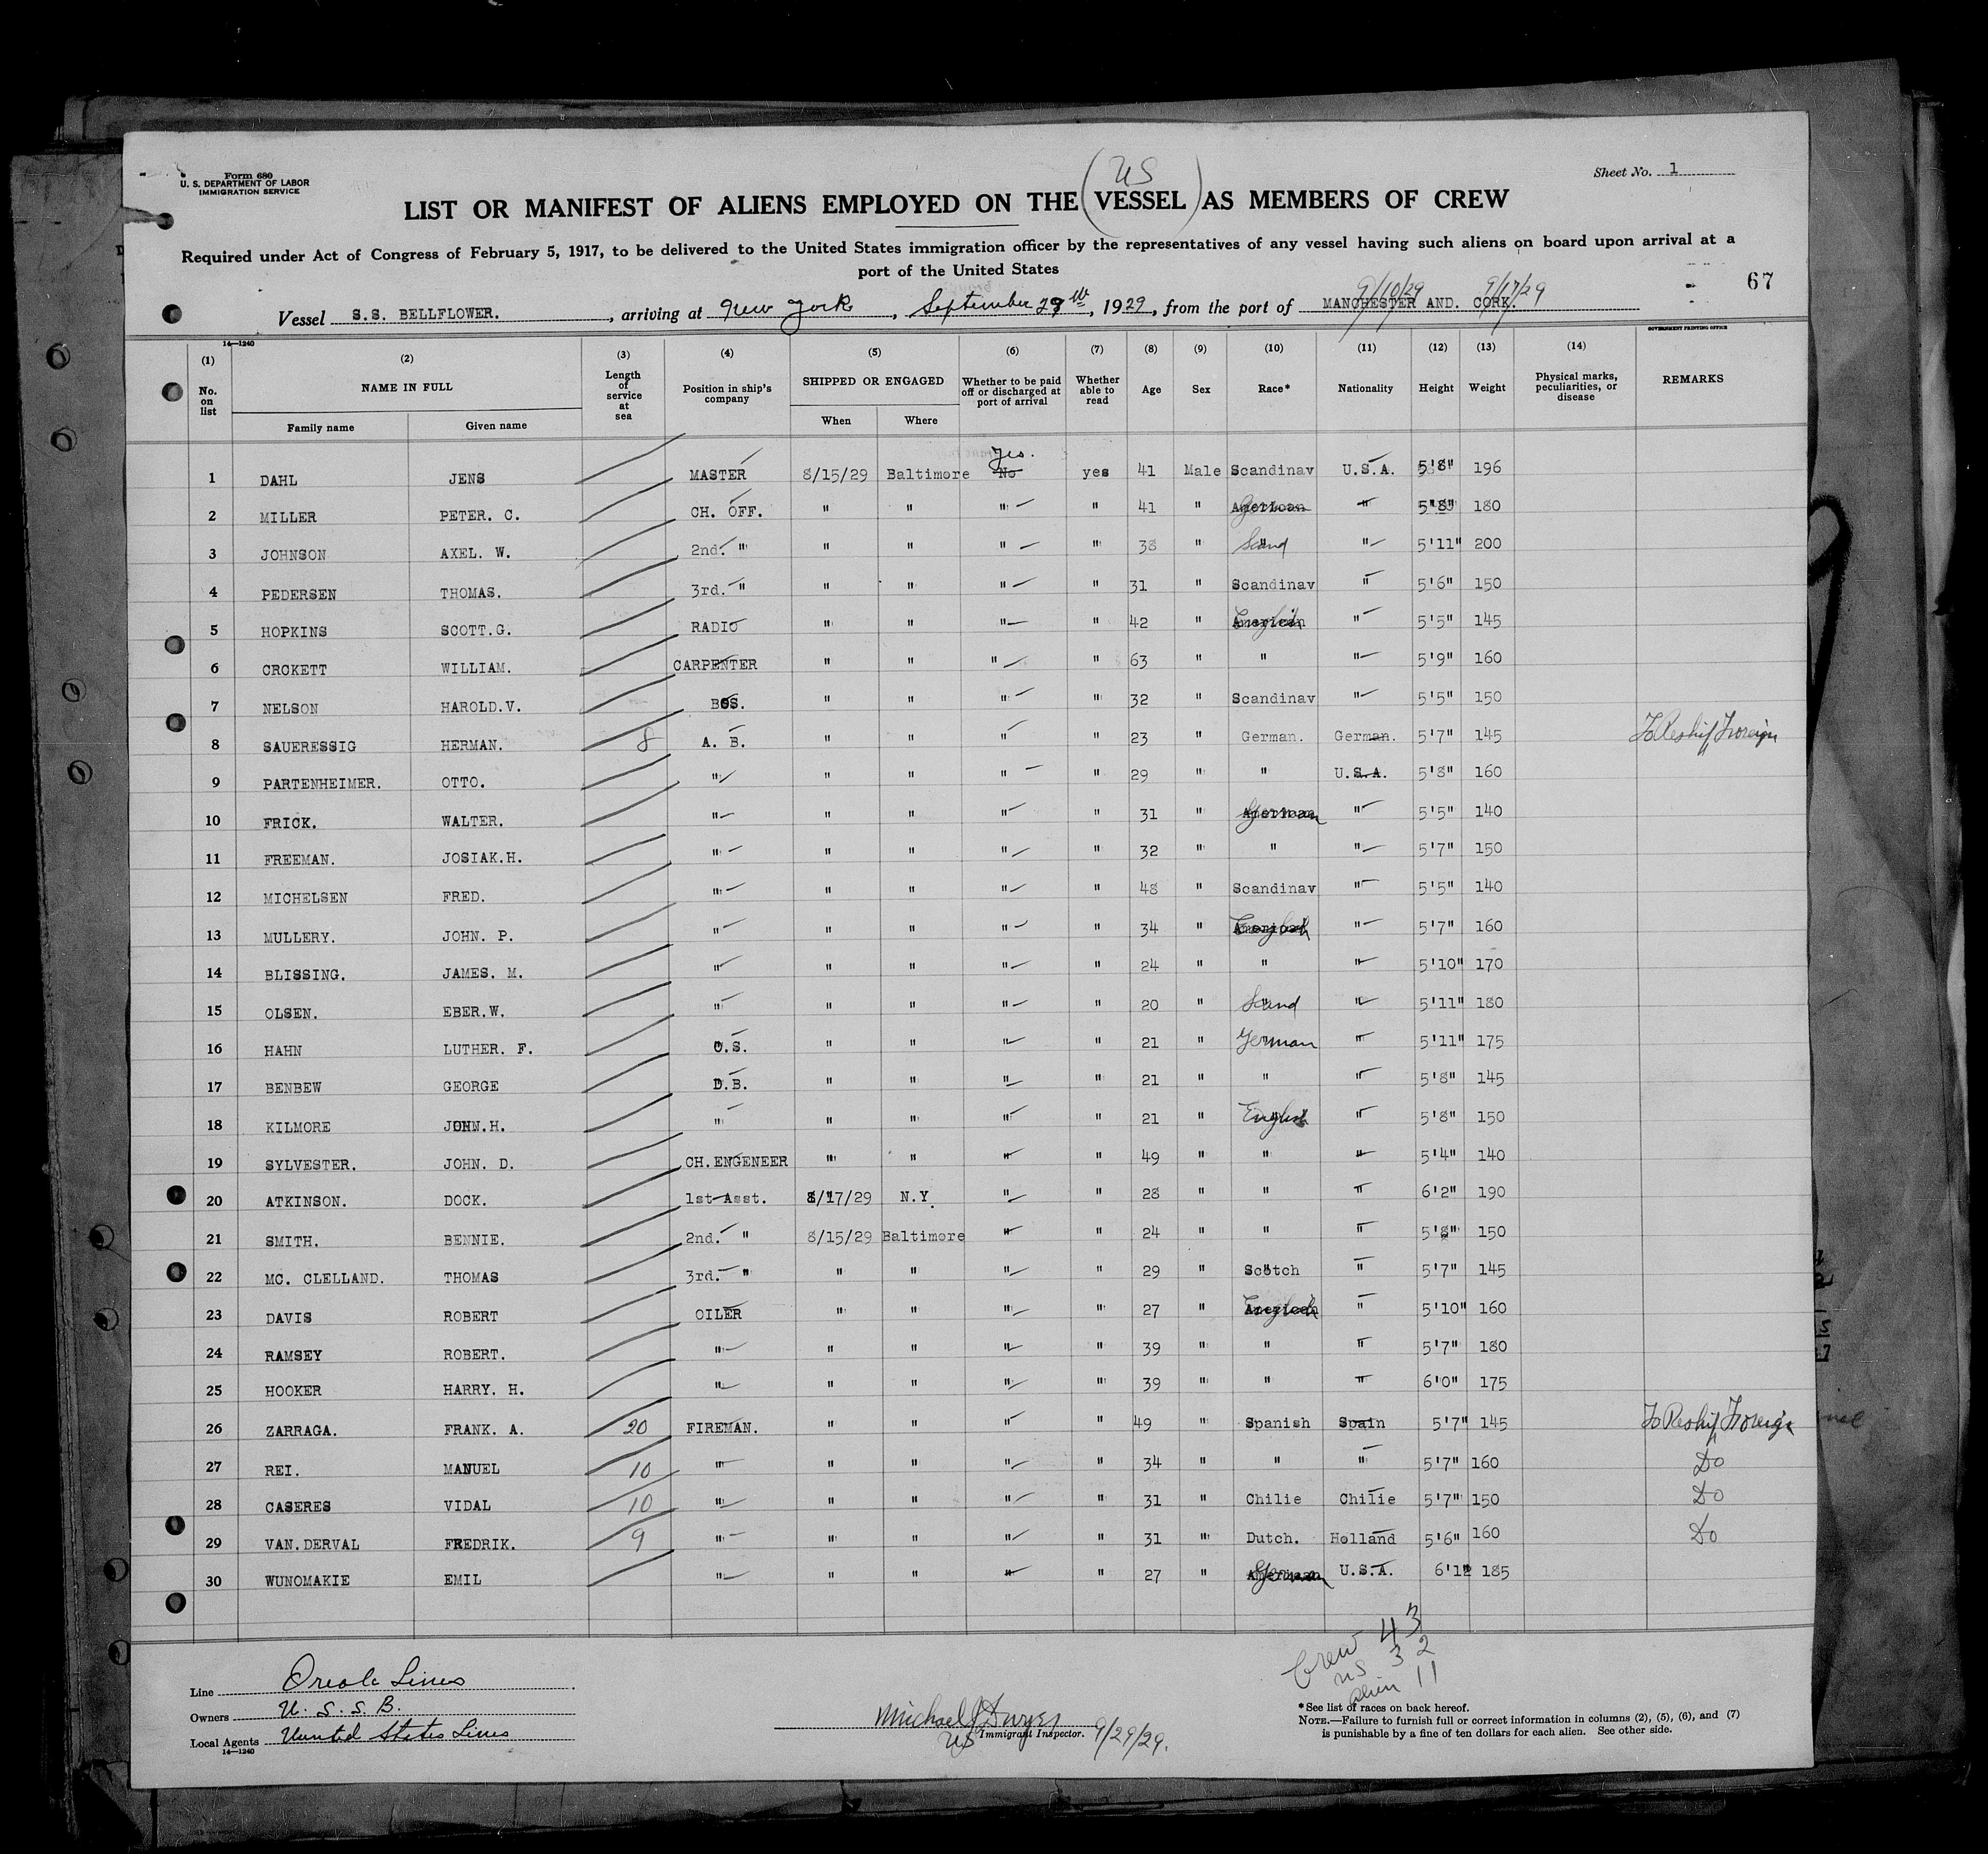 Form 680
U. S. DEPARTMENT OF LABOR
IMMIGRATION SERVICE
Sheet No. 1
US
LIST OR MANIFEST OF ALIENS EMPLOYED ON THE (VESSEL) AS MEMBERS OF CREW
Required under Act of Congress of February 5, 1917, to be delivered to the United States immigration officer by the representatives of any vessel having such aliens on board upon arrival at a
port of the United States
67
9/10/29 9/17/29
Vessel S.S. BELLFLOWER. , arriving at New York , September 29th , 1929 , from the port of MANCHESTER AND. CORK.
14—1240 GOVERNMENT PRINTING OFFICE
(1) (2) (3) (4) (5) (6) (7) (8) (9) (10) (11) (12) (13) (14)
No. on list NAME IN FULL Length of service at sea Position in ship's company SHIPPED OR ENGAGED Whether to be paid off or discharged at port of arrival Whether able to read Age Sex Race* Nationality Height Weight Physical marks, peculiarities, or disease REMARKS
Family name Given name When Where
Yes.
1 DAHL JENS MASTER 8/15/29 Baltimore No yes 41 Male Scandinav U.S.A. 5'8" 196
2 MILLER PETER. C. CH. OFF. " " " " 41 " German " 5'8" 180
3 JOHNSON AXEL. W. 2nd. " " " " " 38 " Scand " 5'11" 200
4 PEDERSEN THOMAS. 3rd. " " " " " 31 " Scandinav " 5'6" 150
5 HOPKINS SCOTT.G. RADIO " " " " 42 " American English " 5'5" 145
6 CROKETT WILLIAM. CARPENTER " " " " 63 " " " 5'9" 160
7 NELSON HAROLD.V. BOS. " " " " 32 " Scandinav " 5'5" 150
8 SAUERESSIG HERMAN. 8 A. B. " " " " 23 " German. German. 5'7" 145 To Reship Foreign
9 PARTENHEIMER. OTTO. " " " " " 29 " " U.S.A. 5'8" 160
10 FRICK. WALTER. " " " " " 31 " American German " 5'5" 140
11 FREEMAN. JOSIAK.H. " " " " " 32 " " " 5'7" 150
12 MICHELSEN FRED. " " " " " 48 " Scandinav " 5'5" 140
13 MULLERY. JOHN. P. " " " " " 34 " American English " 5'7" 160
14 BLISSING. JAMES. M. " " " " " 24 " " " 5'10" 170
15 OLSEN. EBER.W. " " " " " 20 " Scand " 5'11" 180
16 HAHN LUTHER. F. O.S. " " " " 21 " German " 5'11" 175
17 BENBEW GEORGE D.B. " " " " 21 " " " 5'8" 145
18 KILMORE JOHN.H. " " " " " 21 " English " 5'8" 150
19 SYLVESTER. JOHN. D. CH.ENGENEER " " " " 49 " " " 5'4" 140
20 ATKINSON. DOCK. 1st Asst. 8/17/29 N.Y. " " 28 " " " 6'2" 190
21 SMITH. BENNIE. 2nd. " 8/15/29 Baltimore " " 24 " " " 5'8" 150
22 MC. CLELLAND. THOMAS 3rd. " " " " " 29 " Scotch " 5'7" 145
23 DAVIS ROBERT OILER " " " " 27 " American English " 5'10" 160
24 RAMSEY ROBERT. " " " " " 39 " " " 5'7" 180
25 HOOKER HARRY. H. " " " " " 39 " " " 6'0" 175
26 ZARRAGA. FRANK. A. 20 FIREMAN. " " " " 49 " Spanish Spain 5'7" 145 To Reship Foreign
27 REI. MANUEL 10 " " " " " 34 " " " 5'7" 160 Do
28 CASERES VIDAL 10 " " " " " 31 " Chilie Chilie 5'7" 150 Do
29 VAN.DERVAL FREDRIK. 9 " " " " " 31 " Dutch. Holland 5'6" 160 Do
30 WUNOMAKIE EMIL " " " " " 27 " American German U.S.A. 6'1" 185
Crew 43
US 32
Alien 11
Line Oriole Lines
Owners U. S. S. B.
Local Agents United States Lines
14—1240
Michael J Dwyer
US Immigrant Inspector. 9/29/29.
*See list of races on back hereof.
NOTE.—Failure to furnish full or correct information in columns (2), (5), (6), and (7)
is punishable by a fine of ten dollars for each alien. See other side.